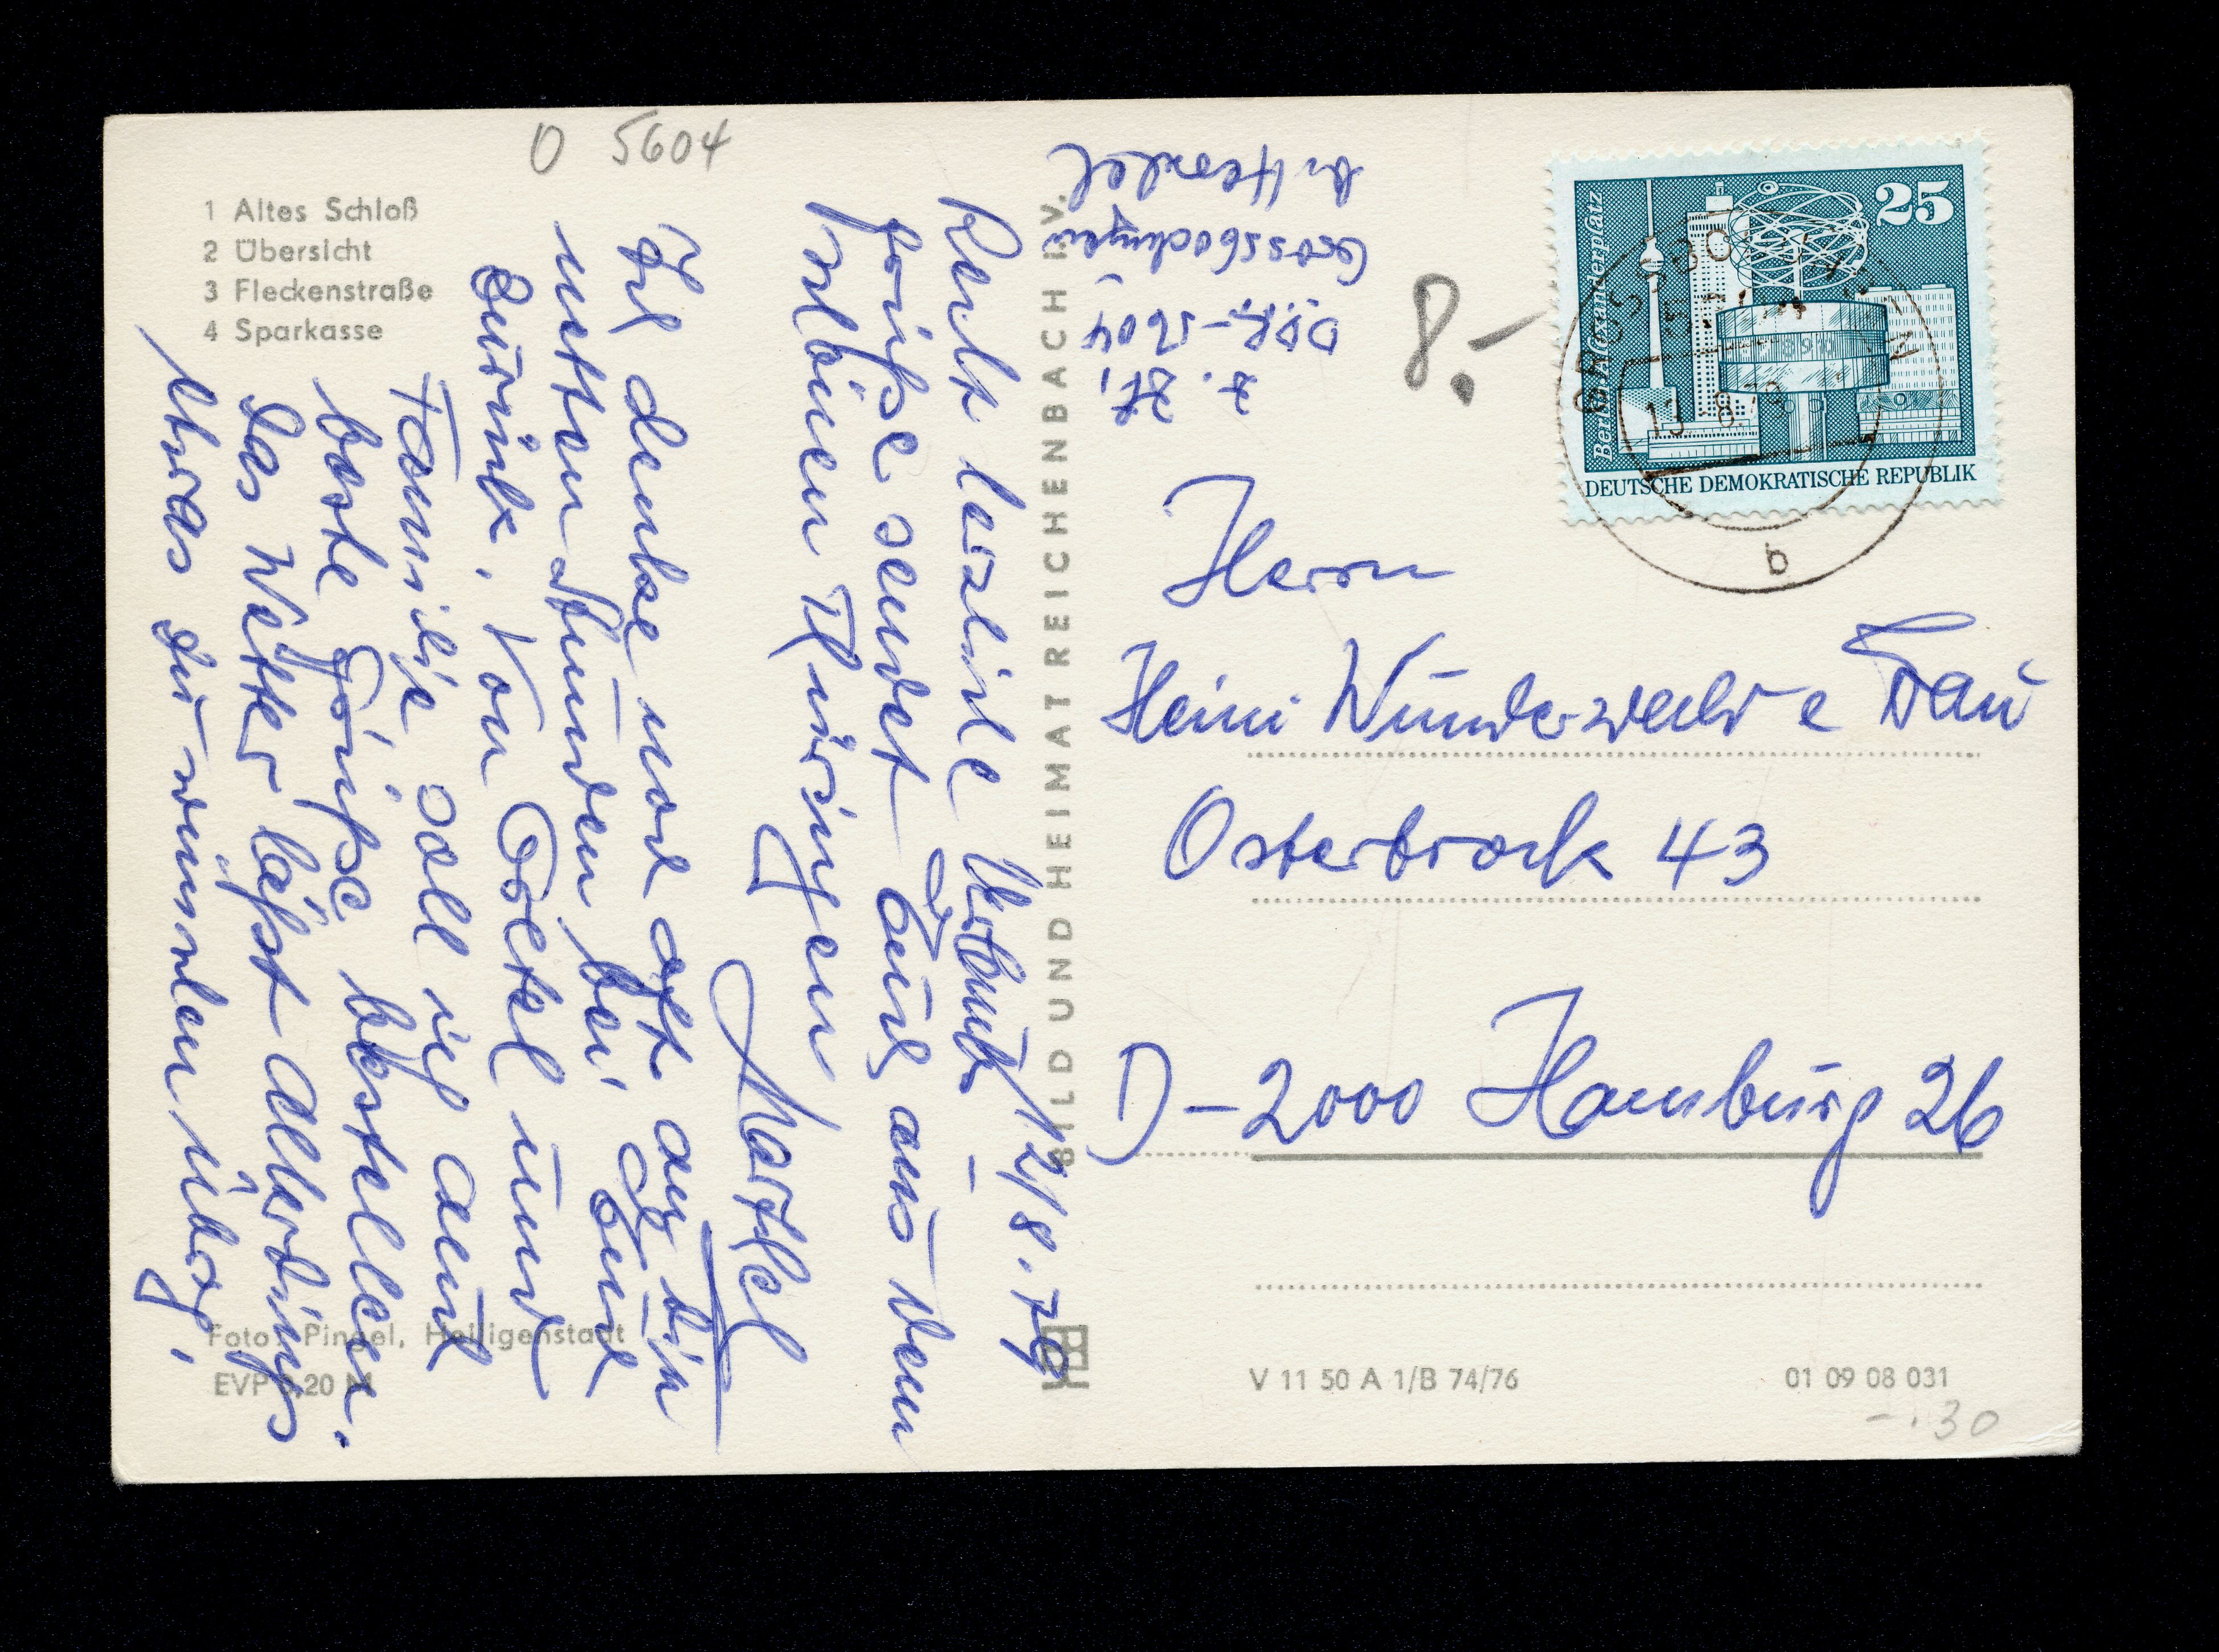 O 5604
1 Altes Schloß
2 Übersicht
3 Fleckenstraße
4 Sparkasse
Recht herzliche Urlaubs 12/8.79
grüsse sendet Euch aus dem
schönen Thüringen
Marthel
Ich denke noch oft an die
netten Stunden bei Euch
zurück. Von Bärbel und
Familie soll ich auch
beste Grüsse bestellen.
Das Wetter lässt allerdings
etwas zu wünschen übrig.
Foto: Pingel, Heiligenstadt
EVP 0,20 M
BILD UND HEIMAT REICHENBACH I. V.
z. Zt.
DDR - 5604
Grossbodungen
8.-
25
Berlin, Alexanderplatz
DEUTSCHE DEMOKRATISCHE REPUBLIK
GROSSBO
b
Herrn
Heini Wunderwald e Frau
Osterbrook 43
D-2000 Hamburg 26
V 11 50 A 1/B 74/76
01 09 08 031
-.30